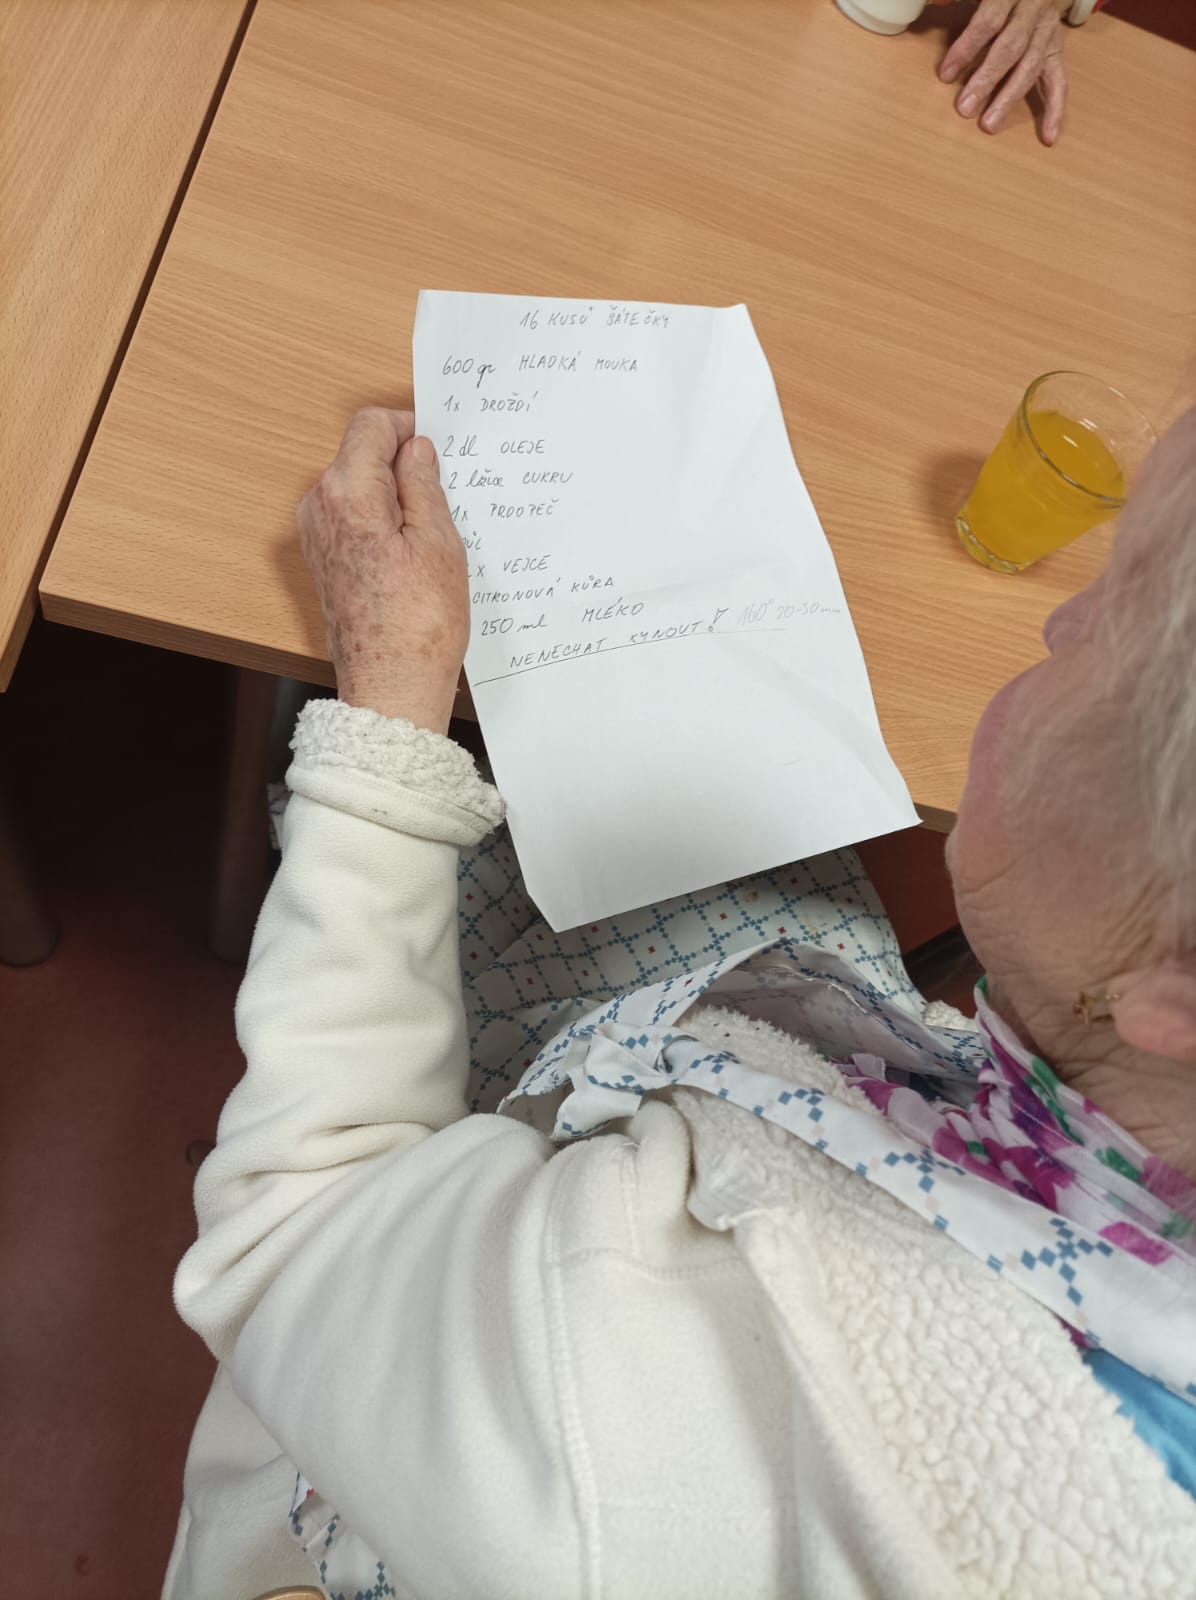 16 KUSŮ ŠÁTEČKY
600 gr HLADKÁ MOUKA
1x DROŽDÍ
2 dl OLEJE
2 lžíce CUKRU
1x PRDOPEČ
ŮL
x VEJCE
CITRONOVÁ KŮRA
250 ml MLÉKO
NENECHAT KYNOUT! 160° 20-30 min